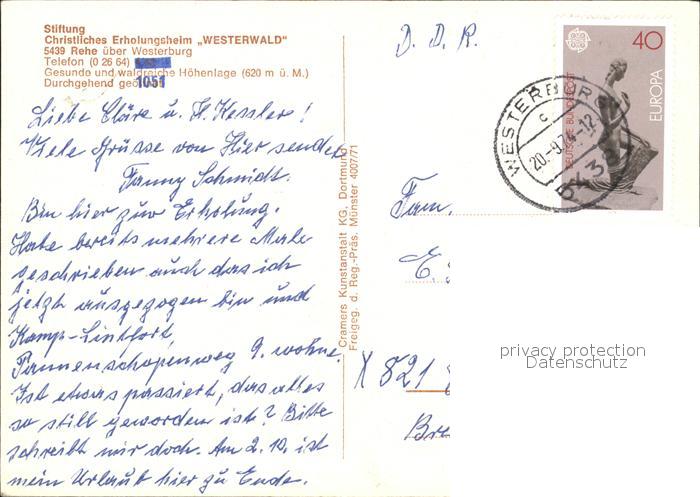 Stiftung
Christliches Erholungsheim „WESTERWALD"
5439 Rehe über Westerburg
Telefon (0 26 64)
Gesunde und waldreiche Höhenlage (620 m ü. M.)
Durchgehend geö
1051
Liebe Cläre u. H. Kessler!
Viele Grüsse von Hier sendet
Fanny Schmidt.
Bin hier zur Erholung.
Habe bereits mehrere Male
geschrieben auch das ich
jetzt ausgezogen bin und
Kamp-Lintfort,
Tannenschopenweg 9. wohne.
Ist etwas passiert, das alles
so still geworden ist? Bitte
schreibt mir doch. Am 2.10. ist
mein Urlaub hier zu Ende.
Cramers Kunstanstalt KG, Dortmund
Freigeg. d. Reg.-Präs. Münster 4007/71
D. D. R.
40
DEUTSCHE BUNDESPOST
EUROPA
WESTERBURG
c
20.-9.74-12
5438
Fam.
E.
X 821
Bre
privacy protection
Datenschutz